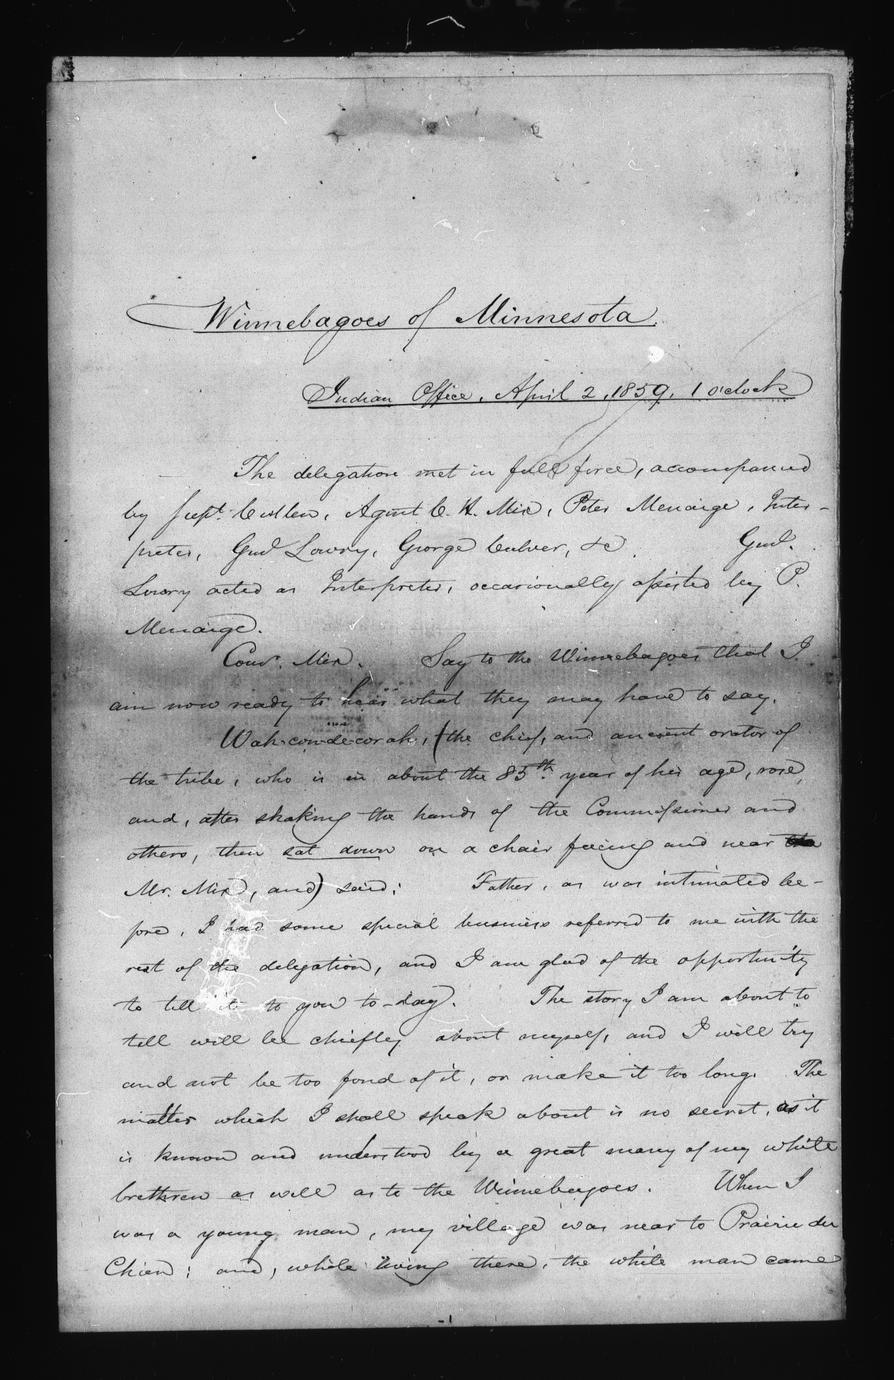 Winnebagoes of Minnesota.
Indian Office, April 2, 1859, 1 o'clock
The delegation met in full force, accompanied
by Supt. Cullen, Agent C. H. Mix, Peter Menaige, Inter-
preter, Genl Lowry, George Culver, &c. Genl.
Lowry acted as Interpreter, occasionally assisted by P.
Menaige.
Com. Mix. Say to the Winnebagoes that I
am now ready to hear what they may have to say.
Wah-con-de-corah, (the chief, and ancient orator of
the tribe, who is in about the 85th year of his age, rose,
and, after shaking the hands of the Commissioner and
others, then sat down on a chair facing and near
Mr. Mix, and) said: Father, as was intimated be-
fore, I had some special business referred to me with the
rest of the delegation, and I am glad of the opportunity
to tell it to you to-day. The story I am about to
tell will be chiefly about myself, and I will try
and not be too fond of it, or make it too long. The
matter which I shall speak about is no secret, as it
is known and understood by a great many of my white
brethren as well as to the Winnebagoes. When I
was a young man, my village was near to Prairie du
Chien; and, while living there, the white man came